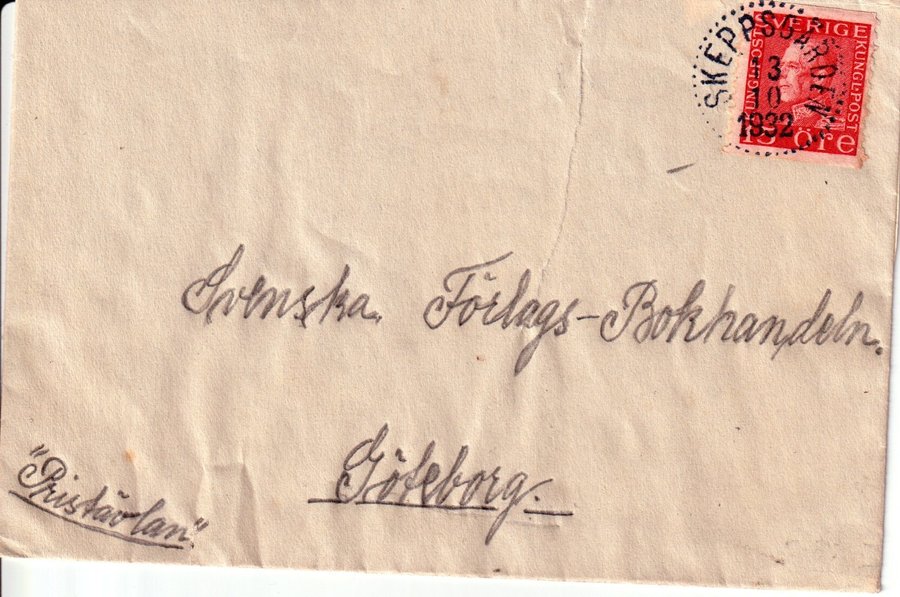 SKEPPSGÅRDEN
3
10
1932
SVERIGE
KUNGL. POST
KUNGL. POST
15 öre
Svenska Förlags-Bokhandeln.
Göteborg.
"Pristävlan"